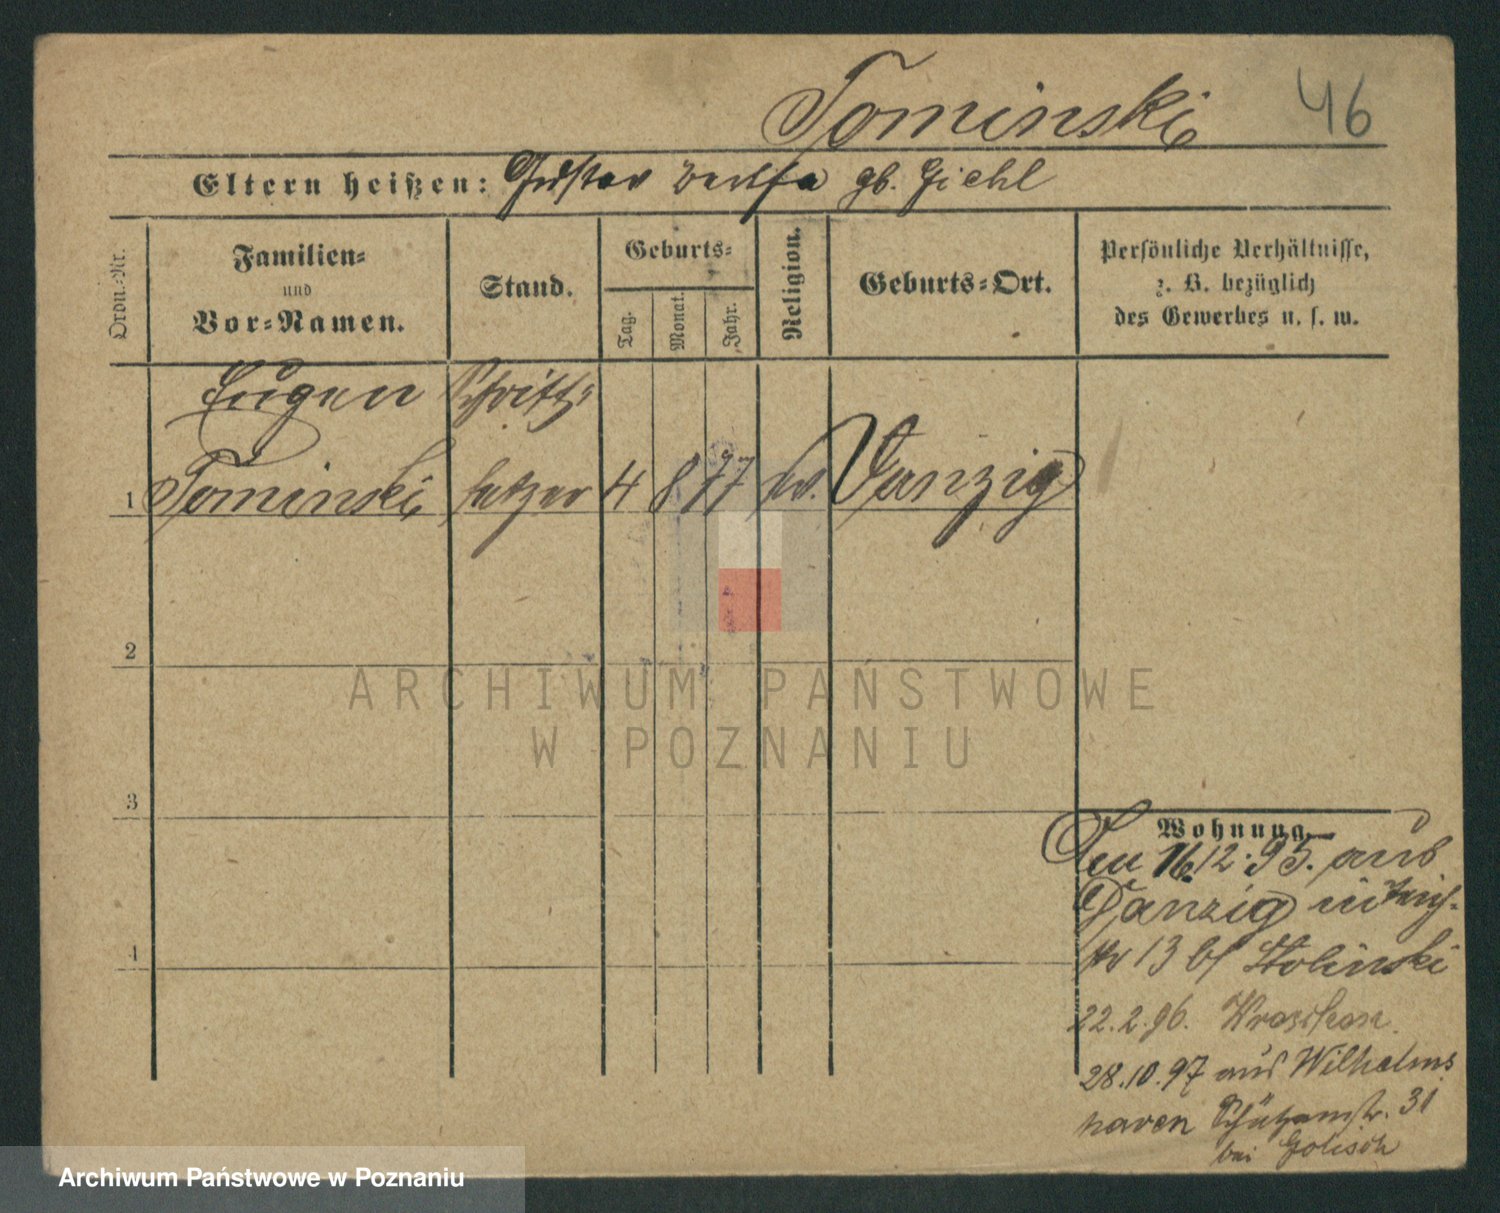 46
Tominski
Eltern heißen: Gustav Bertha gb. Giehl
Ordn.-Nr.
Familien-
und
Vor-Namen.
Stand.
Geburts-
Tag.
Monat.
Jahr.
Religion.
Geburts-Ort.
Persönliche Verhältnisse,
z. B. bezüglich
des Gewerbes u. s. w.
Eugen Schrift-
1 Tominski setzer 4 8 77 ev. Danzig
2
3
4
Wohnung
Den 16.12.95. aus
Danzig in
13 bei Stolinski
22.2.96.
28.10.97 aus Wilhelms
haven Schützenstr. 31
bei Golisch
ARCHIWUM PAŃSTWOWE
W POZNANIU
Archiwum Państwowe w Poznaniu